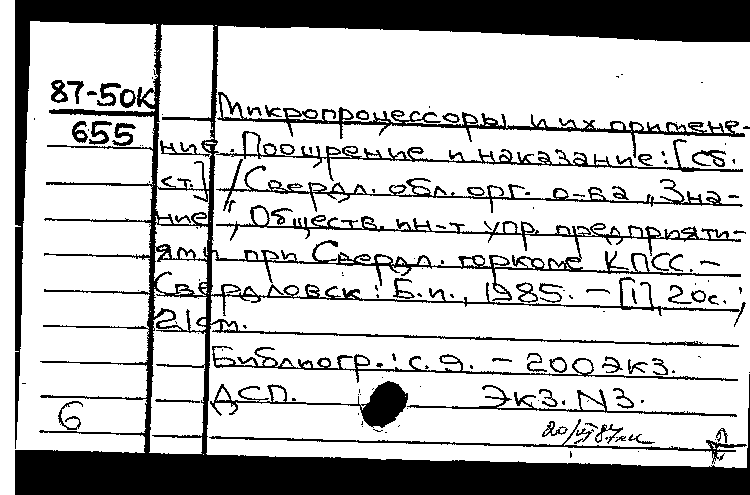 87-50К
655
Микропроцессоры и их примене-
ние. Поощрение и наказание: [Сб.
ст.] / Свердл. обл. орг. о-ва „Зна-
ние“, Обществ. ин-т упр. предприяти-
ями при Свердл. горкоме КПСС. –
Свердловск: Б.и., 1985. – [1], 20с.;
21см.
Библиогр.: с. 9. – 200экз.
ДСП. Экз. N3.
6